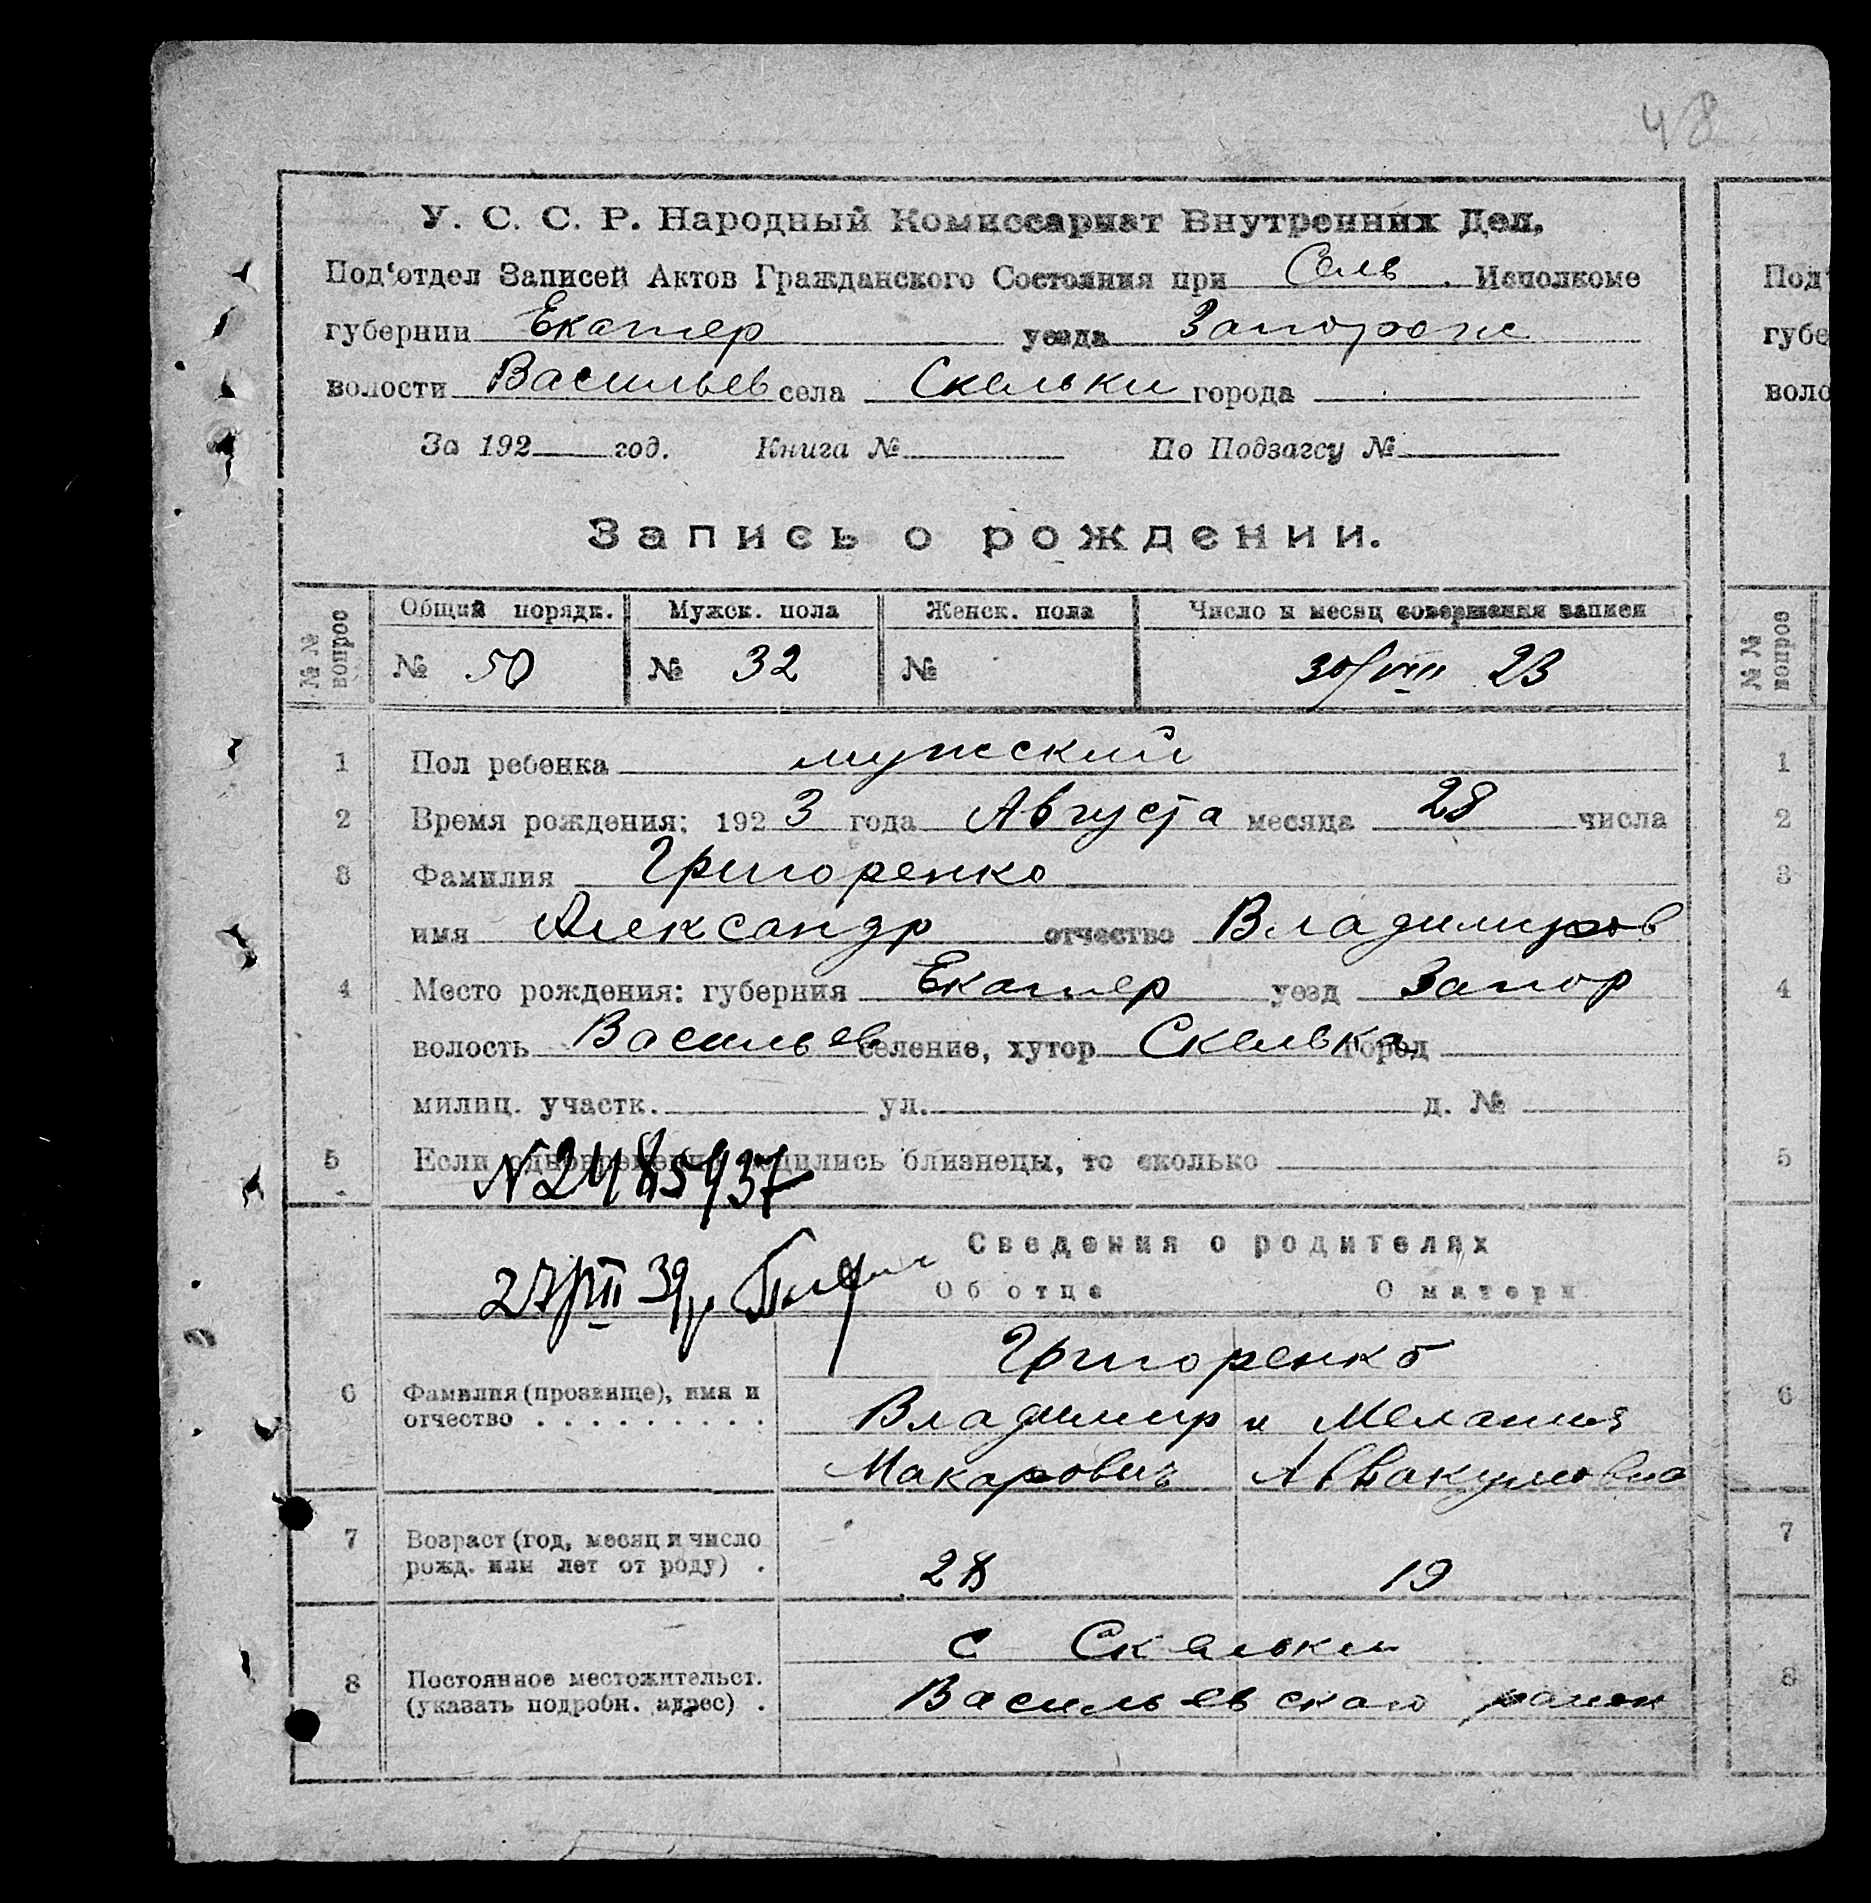 48
У. С. С. Р. Народный Комиссариат Внутренних Дел,
Под'отдел Записей Актов Гражданского Состояния при Сель. Исполкоме
губернии Екатер уезда Запорож
волости Васильев села Скельки города
За 192 год. Книга № По Подзагсу №
Запись о рождении.
№ № вопрос Общий порядк. Мужск. пола Женск. пола Число и месяц совершения записи
№ 50 № 32 № 30/VIII 23
1 Пол ребенка мужский
2 Время рождения: 1923 года Августа месяца 28 числа
3 Фамилия Григоренко
имя Александр отчество Владимиров
4 Место рождения: губерния Екатер уезд Запор
волость Васильев селение, хутор Скелька город
милиц. участк. ул. д. №
5 Если одновременно родились близнецы, то сколько
Сведения о родителях
27/VII 39
Об отце О матери
Григоренко
6 Фамилия (прозвище), имя и Владимир и Мелания
отчество Макарович Аввакумовна
7 Возраст (год, месяц и число
рожд. или лет от роду) . 28 19
с Скельки
8 Постоянное местожительст.
(указать подробн. адрес) . Васильевского
Под'
губе
воло
№ №
вопрос
1
2
3
4
5
6
7
8